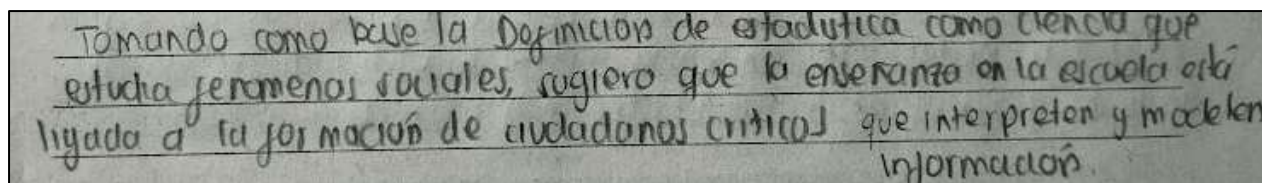 Tomando como base la Definición de estadística como ciencia que
estudia fenomenos sociales, sugiero que la enseñanza en la escuela está
ligada a la formación de ciudadanos criticos que interpreten y modelen
información.